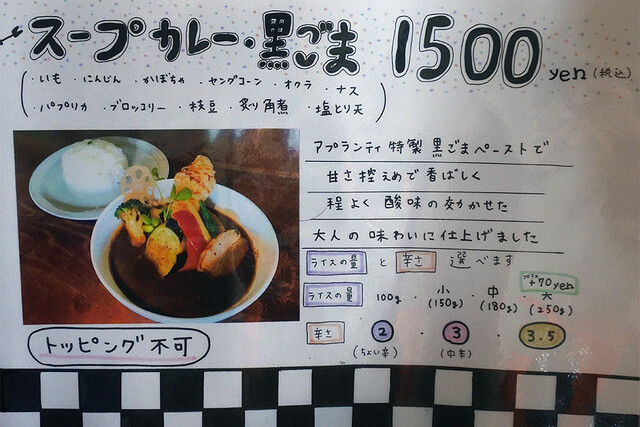 スープカレー・黒ごま 1500 yen (税込)
(・いも ・にんじん ・かぼちゃ ・ヤングコーン ・オクラ ・ナス
・パプリカ ・ブロッコリー ・枝豆 ・炙り角煮 ・塩とり天)
アプランティ特製 黒ごまペーストで
甘さ控えめで香ばしく
程よく酸味の効かせた
大人の味わいに仕上げました
ライスの量 と 辛さ 選べます
プラス+70yen
ライスの量 100g ・ 小(150g) ・ 中(180g) ・ 大(250g)
辛さ 2(ちょい辛) ・ 3(中辛) ・ 3.5
トッピング不可